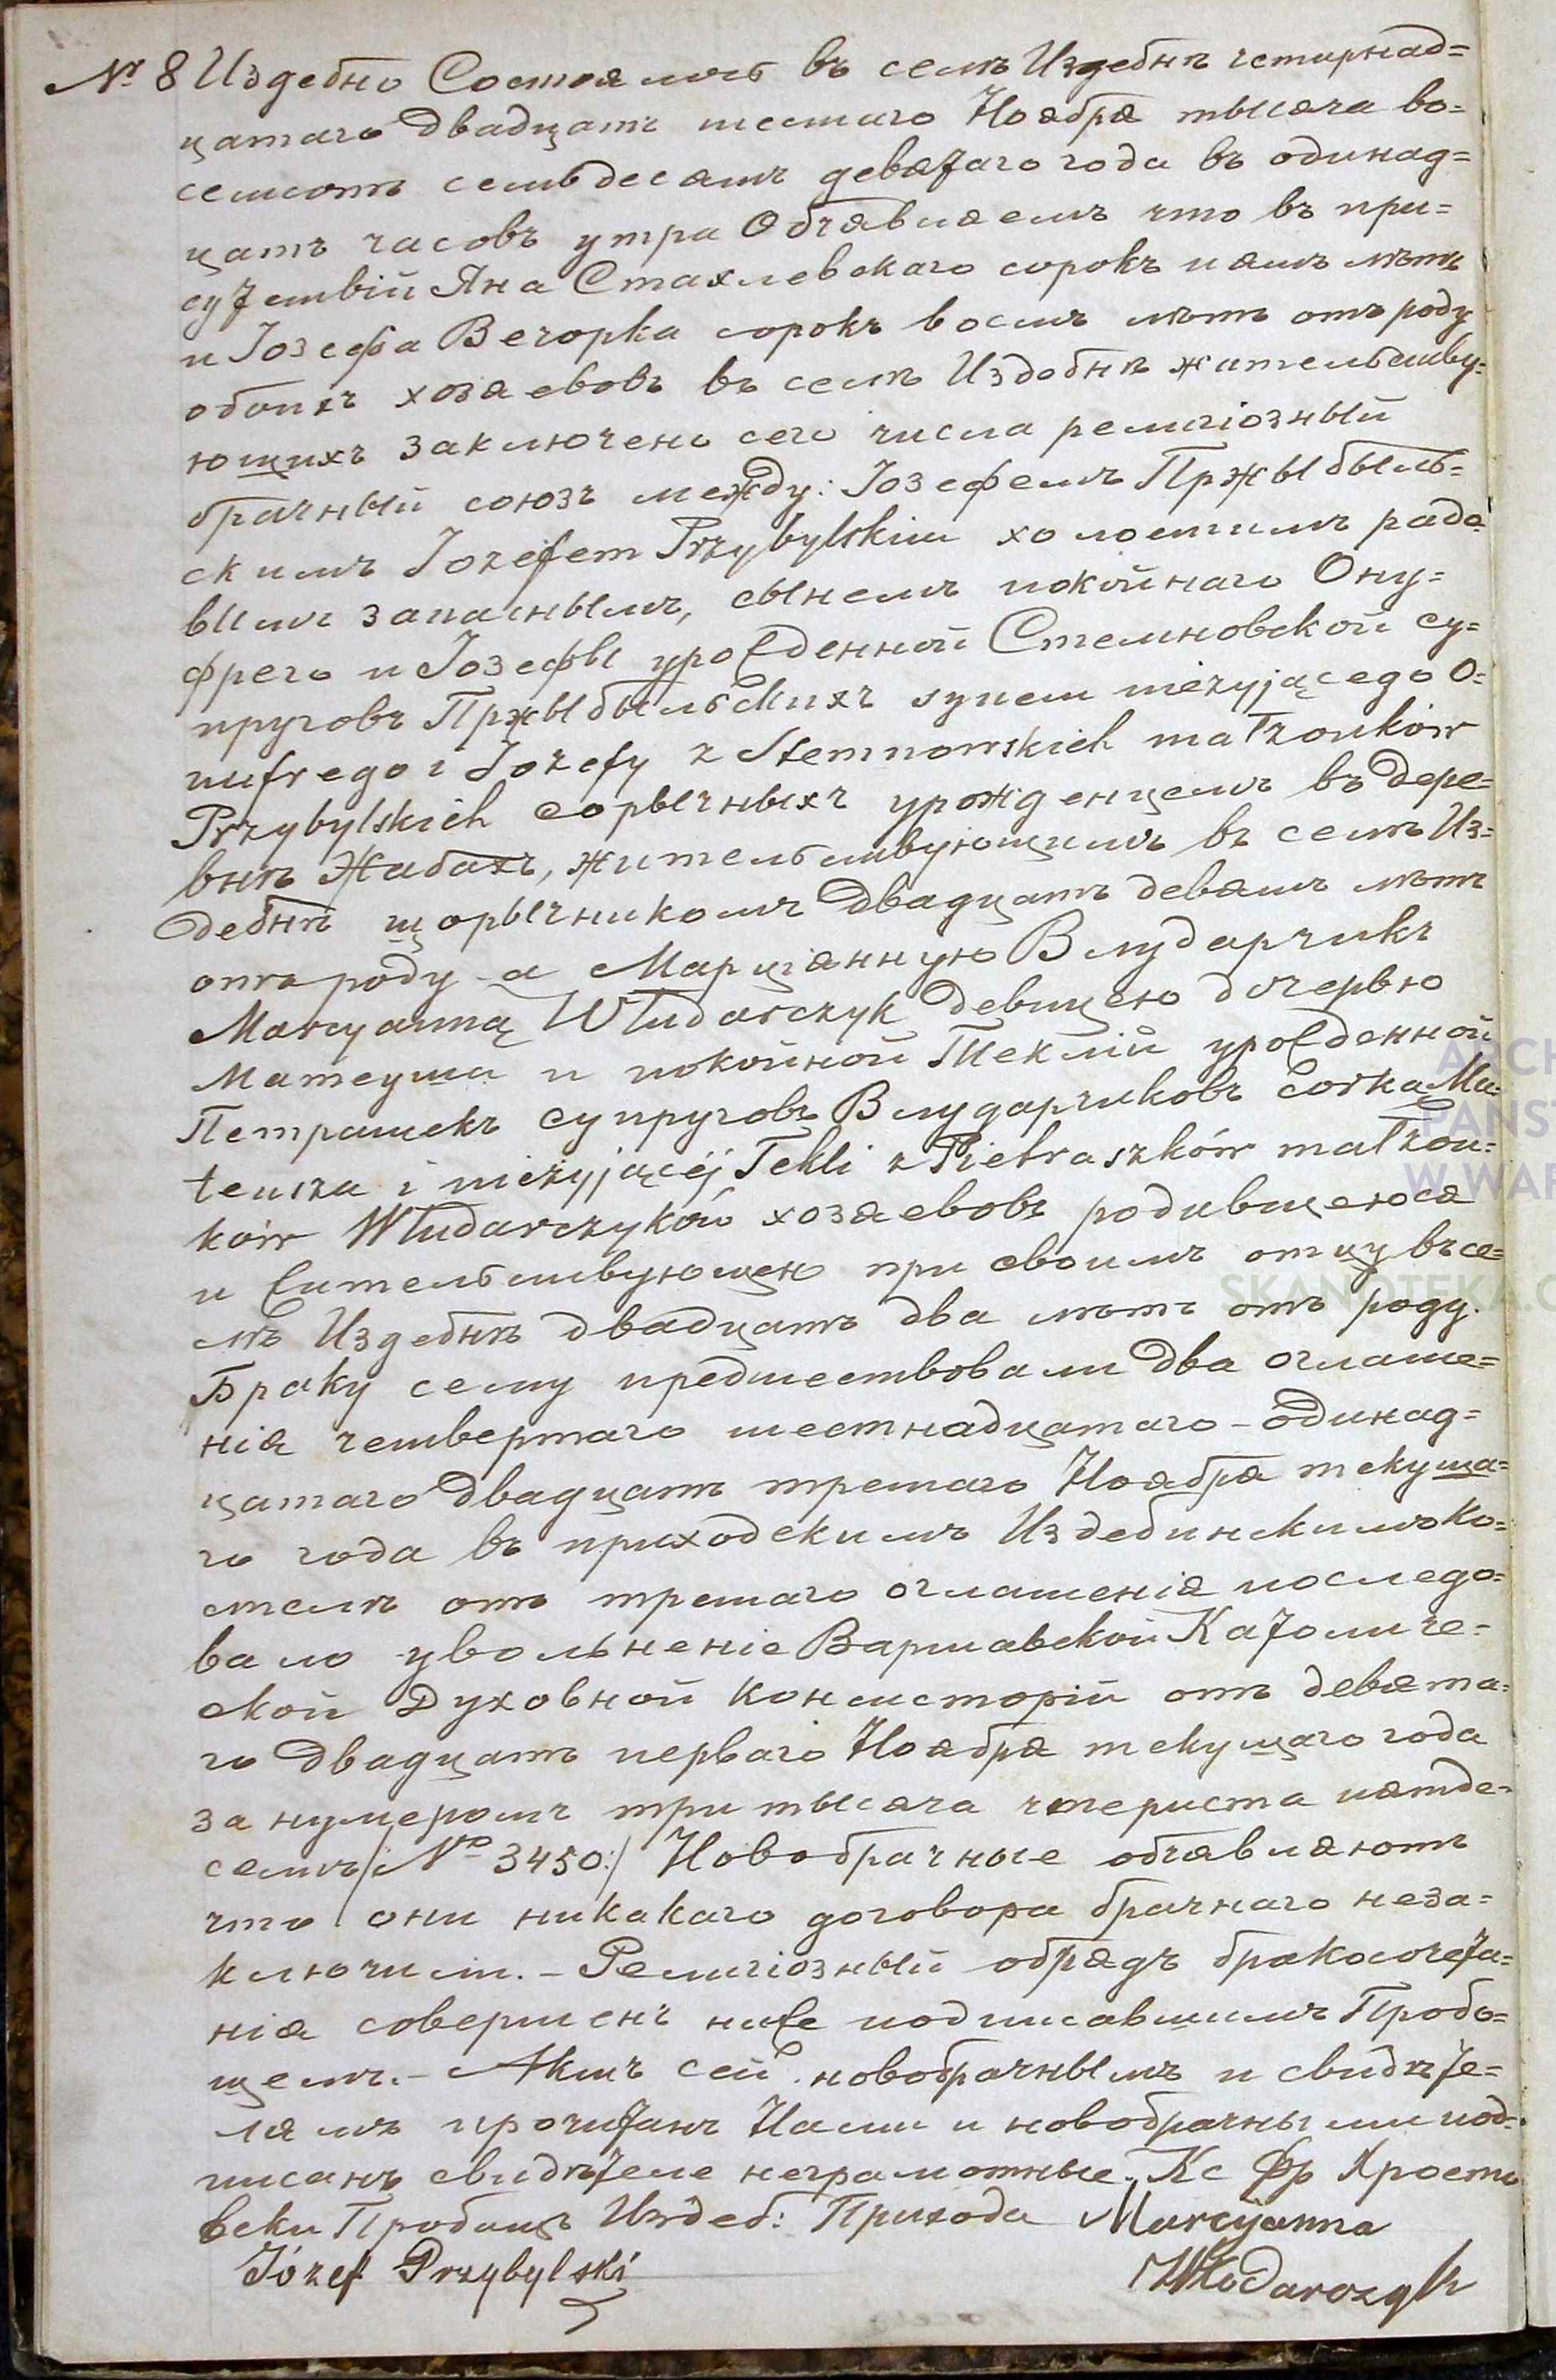 № 8 Издебно Состоялось въ селѣ Издебнѣ четирнад=
цатаго двадцать шестаго Ноября тысяча во=
семсотъ семьдесятъ девятаго года въ одинад=
цать часовъ утра Объявляемъ что въ при=
сутствiи Яна Стахлевскаго сорокъ пять лѣтъ
и Іозефа Вечорка сорокъ восмъ лѣтъ отъ роду
обоихъ хозяевовъ въ селѣ Издобнѣ жительству=
ющихъ заключенъ сего числа религіозный
брачный союзъ между: Іозефемъ Пржыбыль=
скимъ Jozefem Przybylskim холостимъ рядо=
вымъ запаснымъ, сынемъ покойнаго Ону=
фрего и Іозефы урожденной Стемновской су=
пруговъ Пржыбыльскихъ synem nieżyjącego O=
nufrego i Jozefy z Stemnowskich małżonków
Przybylskich сорычныхъ урожденцемъ въ дере=
внѣ Жабахъ, жительствующимъ въ селѣ Из=
дебнѣ щорычникомъ двадцать девять лѣтъ
отъ роду а Марціянную Влударчикъ
Marcyanną Włudarczyk девицею дочерью
Матеуша и покойной Теклій урожденной
Петрашекъ супруговъ Влударчиковъ corką Ma=
teusza i nieżyjącéj Tekli z Pietraszków małżon=
ków Włudarczyków хозяевовъ родившеюся
и жительствующею при своимъ отцу въ се=
лѣ Издебнѣ двадцать два лѣтъ отъ роду.
Браку сему предшествовали два оглаше=
нія четвертаго шестнадцатаго – одинад=
цатаго двадцать третаго Ноября текуща=
го года въ приходскимъ Издебинскимъ Ко=
стелѣ отъ третаго оглашенія последо=
вало увольненіе Варшавской Католиче=
ской Духовной Консисторіи отъ девята=
го двадцать перваго Ноября текущаго года
за нумеромъ три тысяча чтериста пятде=
семъ /№ 3450:/ Новобрачные объявляютъ
что они никакаго договора брачнаго неза=
ключили. – Религіозный обрядъ бракосочета=
нія совершенъ ниже подписавшимъ Пробо=
щемъ. – Актъ сей новобрачнымъ и свидѣте=
лямъ прочитанъ Нами и новобрачными под=
писанъ свидѣтеле неграмотные. Кс Фр
Пробощъ Издеб: Прихода Marcyanna
Józef Przybylski Włodarczyk
ARCH
PAŃST
W WAR
SKANOTEKA.